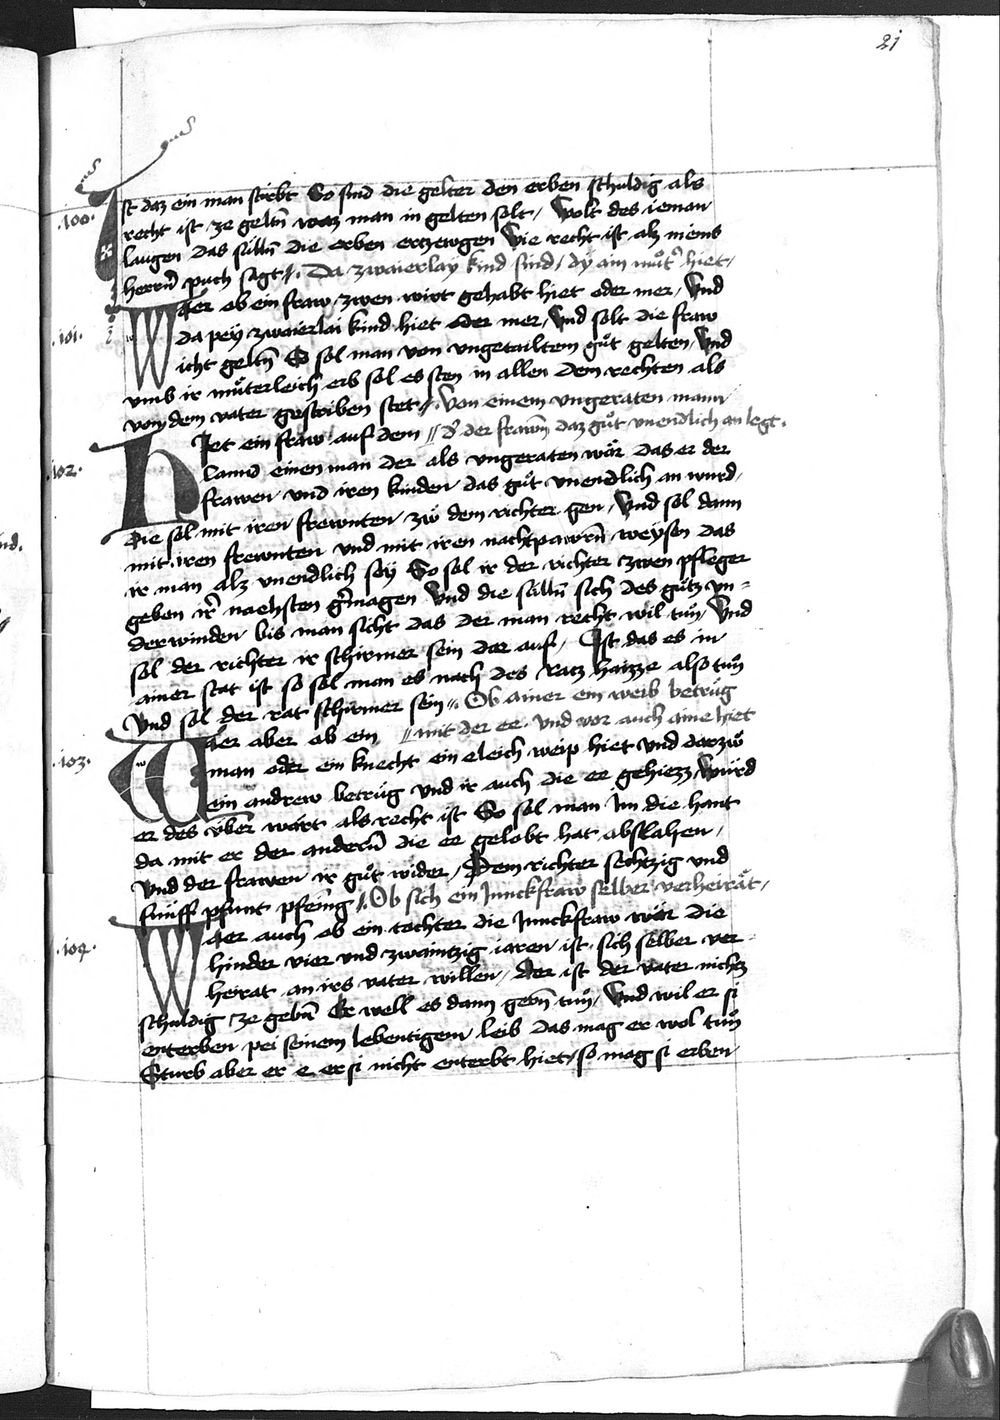 21
.100. Ist daz ein man stirbt So sind die gelter den erben schuldig als
recht ist ze geltn̄ waz man in gelten solt / Wolt des ieman
laugen Das sulln̄ die erben ertzewgen Wie recht ist alz meins
herrn̄ puch sagt //. Da zwaierlaÿ kind sind / dÿ ain mut̊ hiet /
Wer ob ein fraw zwen wirt gehabt hiet oder mer / Und
.101. da peÿ zwaierlai kind hiet oder mer / Und solt die fraw
icht geltn̄ So sol man von ungetailtem gůt gelten / Und
umb ir můterleich erb sol es sten in allen dem rechten als
von dem vater geschriben stet //. Von einem ungeraten mann
Hiet ein fraw auf dem // d̾ der frawn̄ daz gůt unendlich an legt.
.102. Lannd einen man Der als ungeraten wär Das er der
frawen und iren kinden das gůt unendlich an wurd /
Die sol mit iren frewnten zů dem richter gen / Und sol dann
mit iren frewnten und mit iren nachtpawrn̄ weysen das
ir man alz unendlich seÿ So sol ir der richter zwen pfleger
geben ir̄ nachsten gemagen Und die sulln̄ sich des gůtz un=
derwinden bis man sicht das der man recht wil tůn / Und
sol der richter ir schirmer sein dar auf / Ist das es in
ainer stat ist so sol man es nach des ratz haizze also tůn
Und sol der rat schirmer sein //. Ob ainer ein weib betrüg
Wer aber ob ein // mit der ee. und vor auch aine hiet
.103. man oder ein knecht ein eleich weip hiet und darzů
ein andrew betrüg und ir auch die ee gehiezz Würd
er des vber wart als recht ist So sol man im die hant
da mit er der andern̄ die ee gelobt hat abslahen /
Und der frawen ir gůt wider / Dem richter sechtzig und
fünff pfunt pfenig //. Ob sich ein Junckfraw selber verheirät /
Wer auch ob ein tochter die Junckfraw wär die
.104. hinder vier und zwaintzig iaren ist sich selber ver=
heirat an irs vater willen / Der ist der vater nichtz
schuldig ze gebn̄ Er well es dann gern̄ tůn / Und wil er si
enterben pei seinem lebentigem leib das mag er wol tůn
Sturb aber er e er si nicht enterbt hiet / so mag si erben